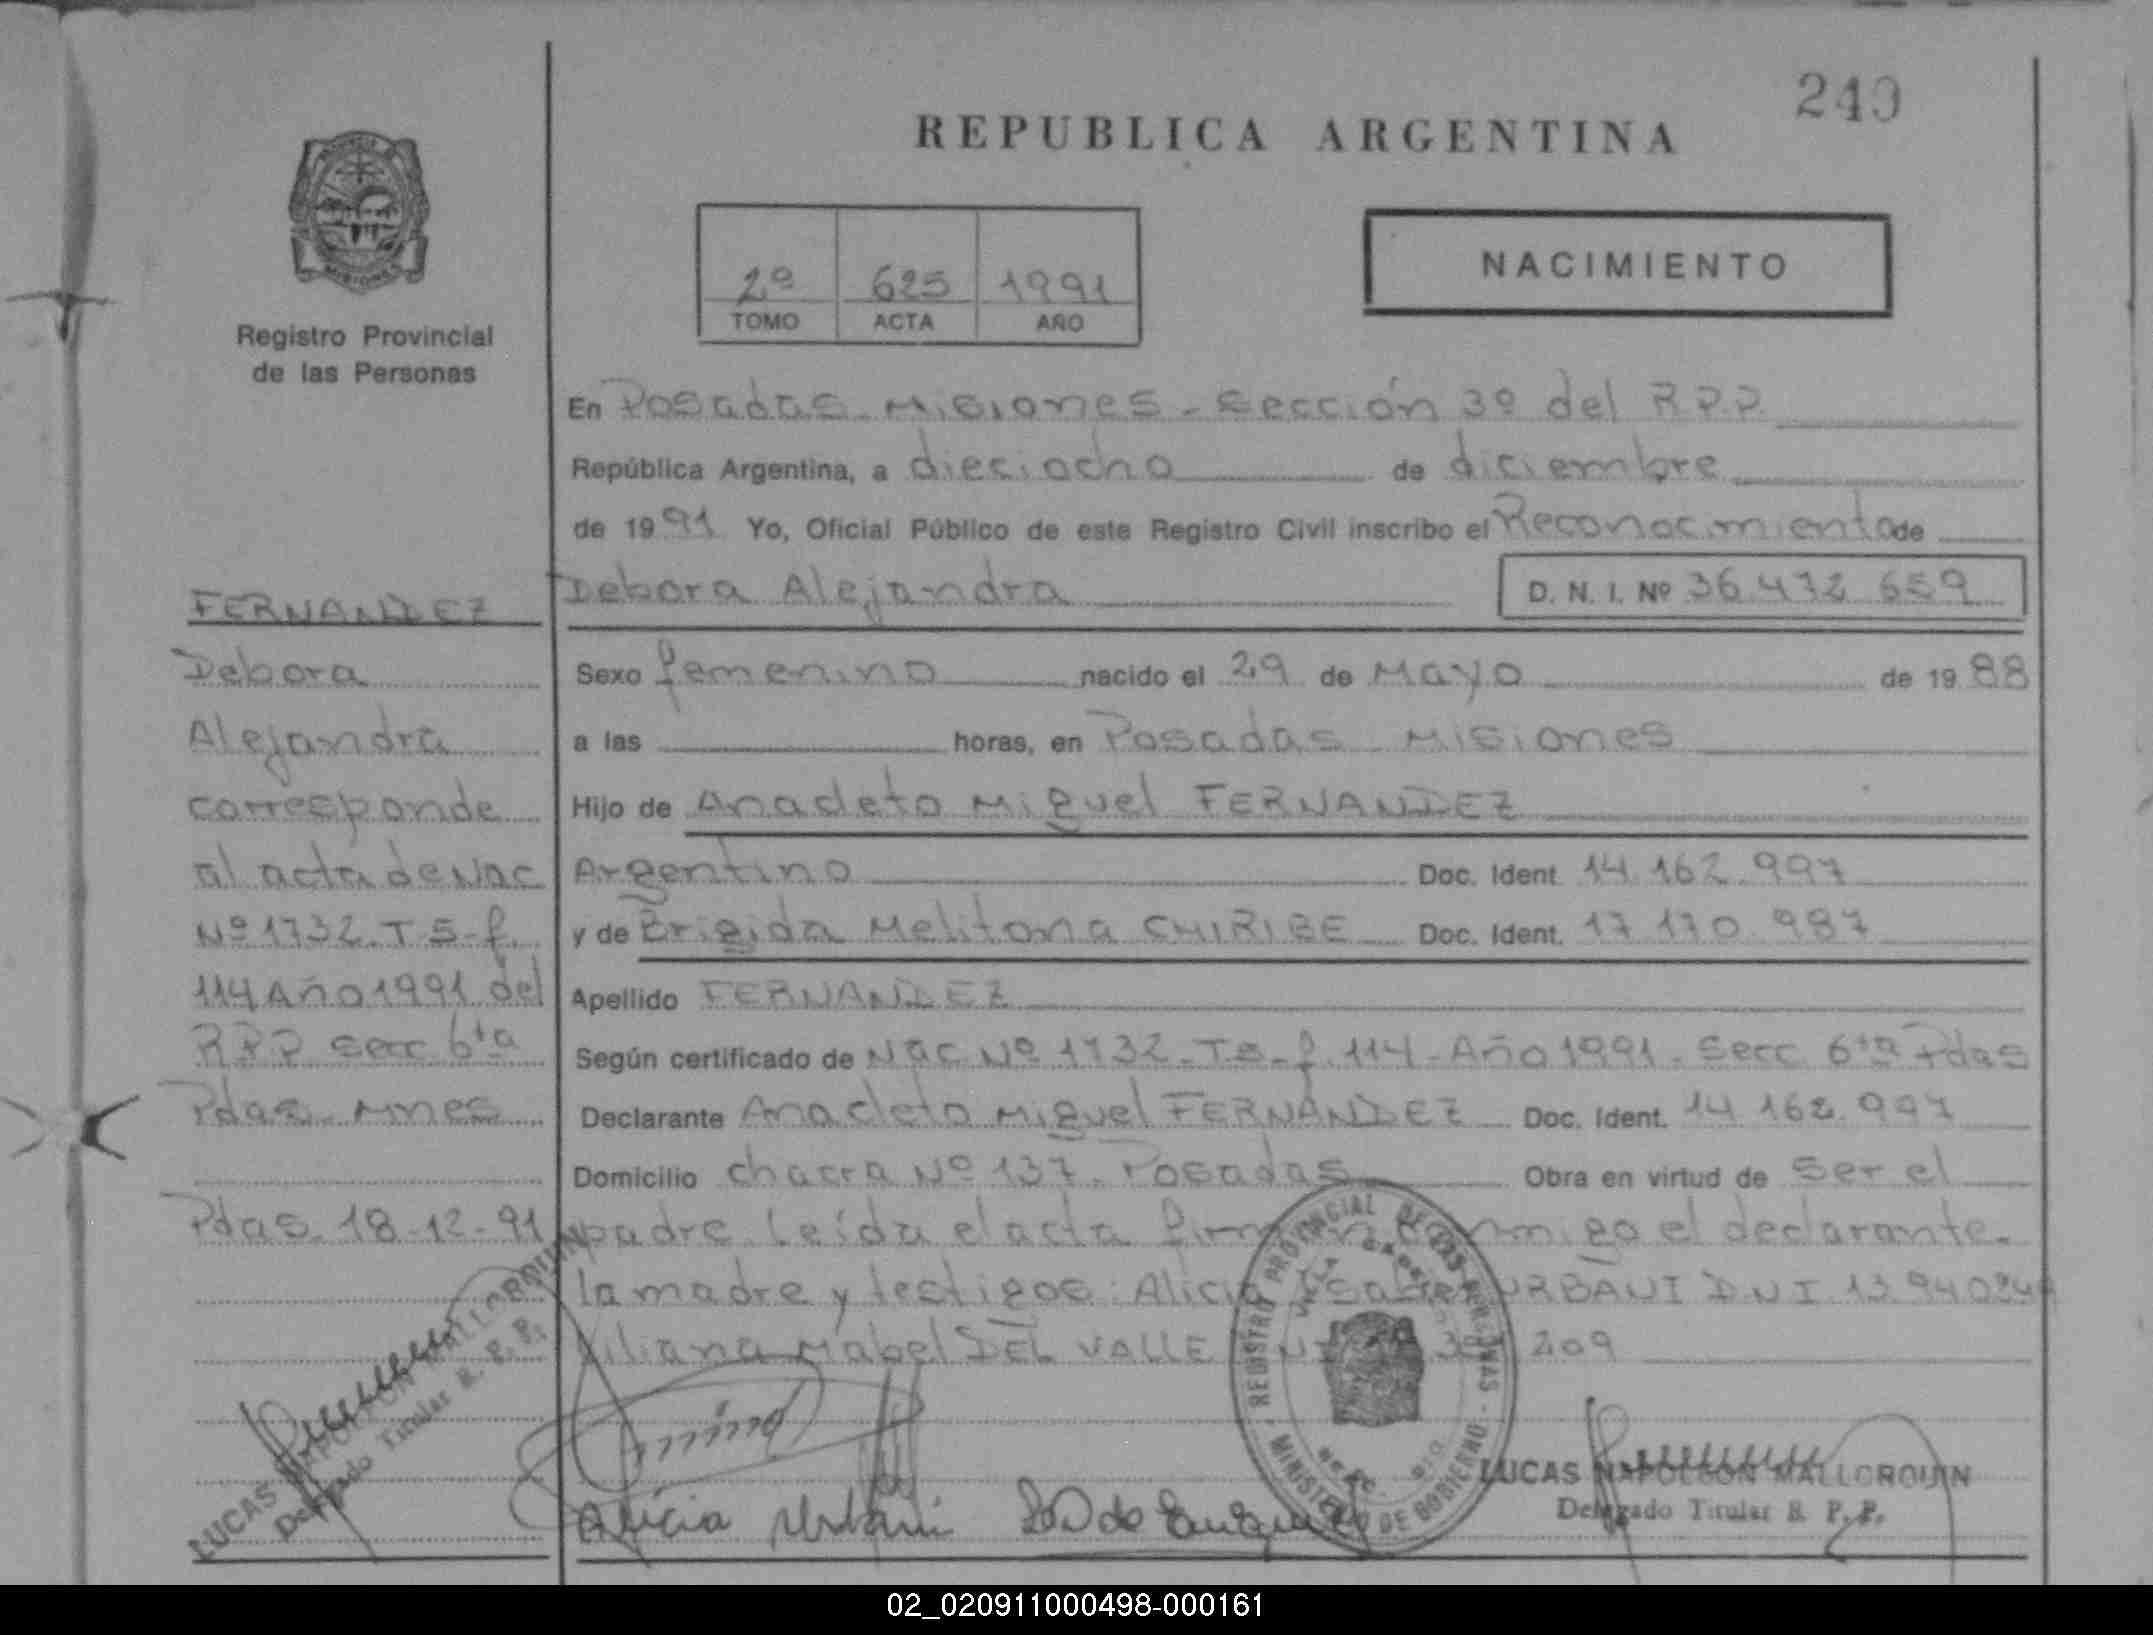 249
REPUBLICA ARGENTINA
2º 625 1991
TOMO ACTA AÑO
NACIMIENTO
Registro Provincial
de las Personas
En Posadas - Misiones - Sección 3º del R.P.P.
República Argentina, a dieciocho de diciembre
de 1991 Yo, Oficial Público de este Registro Civil inscribo el Reconocimiento de
Debora Alejandra D. N. I. Nº 36.472.659
Sexo femenino nacido el 29 de Mayo de 1988
a las horas, en Posadas - Misiones
Hijo de Anacleto Miguel FERNANDEZ
Argentino Doc. Ident. 14.162.997
y de Brigida Melitona CHIRIBE Doc. Ident. 17.170.987
Apellido FERNANDEZ
Según certificado de Nac Nº 1732 - T 5 - f. 114 - Año 1991 - Secc 6ta Pdas
Declarante Anacleto Miguel FERNANDEZ Doc. Ident. 14.162.997
Domicilio chacra Nº 137. Posadas Obra en virtud de ser el
padre. Leída el acta firman conmigo el declarante.
la madre y testigos: Alicia URBANI DNI 13.940
Liliana Mabel DEL VALLE 209
FERNANDEZ
Debora
Alejandra
corresponde
al acta de Nac
Nº 1732. T 5 - f.
114 Año 1991 del
RPP secc 6ta
Pdas - Mnes
Pdas - 18-12-91
LUCAS NAPOLEON MALLORQUIN
Delegado Titular R. P. P.
Alicia Urbani
REGISTRO PROVINCIAL DE LAS PERSONAS - MINISTERIO DE GOBIERNO -
LUCAS NAPOLEON MALLORQUIN
Delegado Titular R. P. P.
02_020911000498-000161